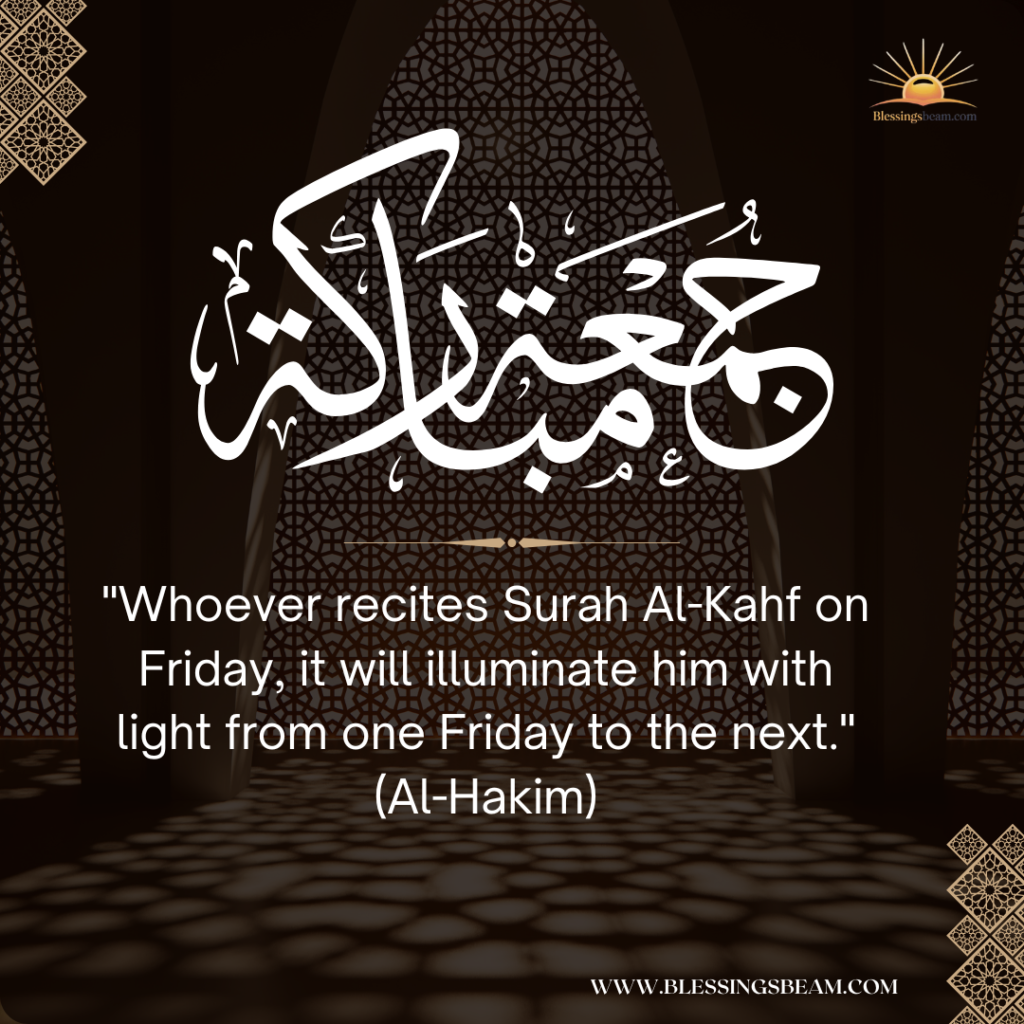 Blessingsbeam.com
جُمُعَة مباركة
"Whoever recites Surah Al-Kahf on
Friday, it will illuminate him with
light from one Friday to the next."
(Al-Hakim)
WWW.BLESSINGSBEAM.COM